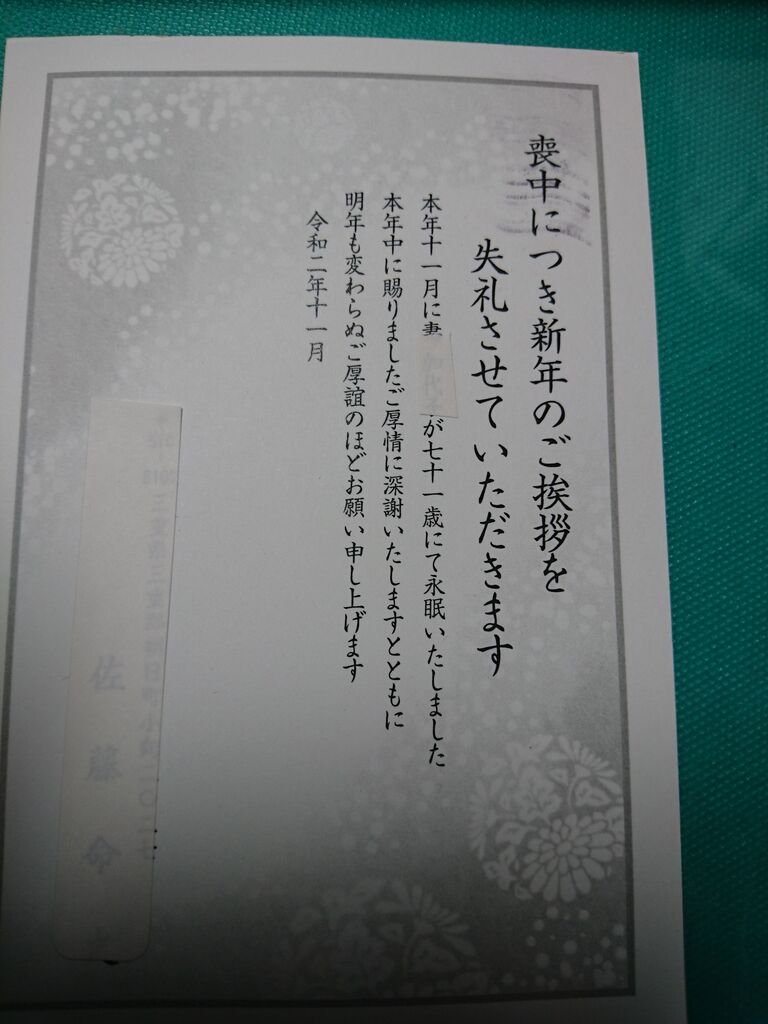 喪中につき新年のご挨拶を
失礼させていただきます
本年十一月に妻 が七十一歳にて永眠いたしました
本年中に賜りましたご厚情に深謝いたしますとともに
明年も変わらぬご厚誼のほどお願い申し上げます
令和二年十一月